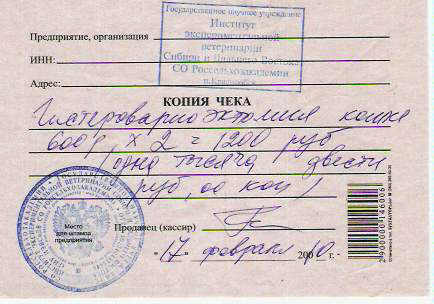 Государственное научное учреждение
Институт
экспериментальной
ветеринарии
Сибири и Дальнего Востока
СО Россельхозакадемии
п.Краснообск
Предприятие, организация
ИНН:
Адрес:
КОПИЯ ЧЕКА
Гистероовариоэктомия кошка
600р. х 2 = 1200 руб
(одна тысяча двести
руб, 00 коп)
Место
для штампа
предприятия
Продавец (кассир)
"17" февраля 2010 г.
2900000146006